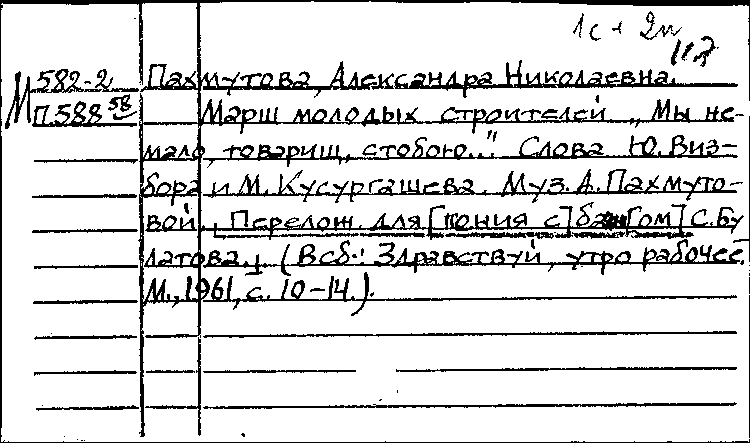 1с + 2п
М 582-2 Пахмутова, Александра Николаевна.
П.588 58 Марш молодых строителей „Мы не-
мало, товарищ, стобою..." Слова Ю. Виз-
бора и М. Кусургашева. Муз. А. Пахмуто-
вой. Перелож. для [пения с] ба[ном] С. Бу
латова. (В сб.: Здравствуй, утро рабочее.
М., 1961, с. 10-14.).